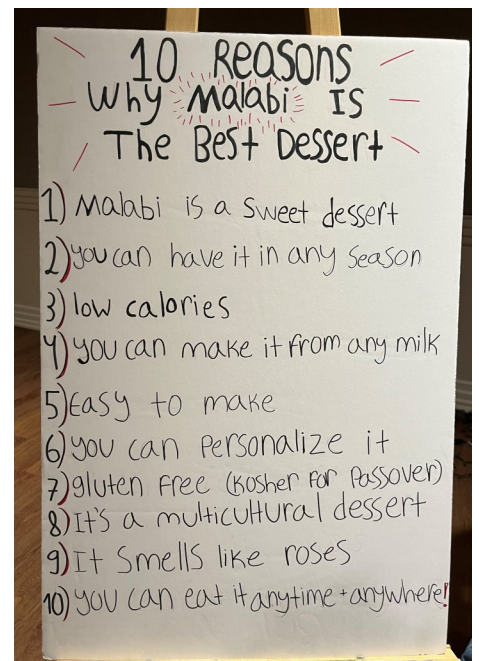 10 Reasons
Why Malabi Is
The Best Dessert
1) Malabi is a sweet dessert
2) you can have it in any season
3) low calories
4) you can make it from any milk
5) Easy to make
6) you can personalize it
7) gluten free (Kosher for Passover)
8) It's a multicultural dessert
9) It smells like roses
10) you can eat it anytime + anywhere!